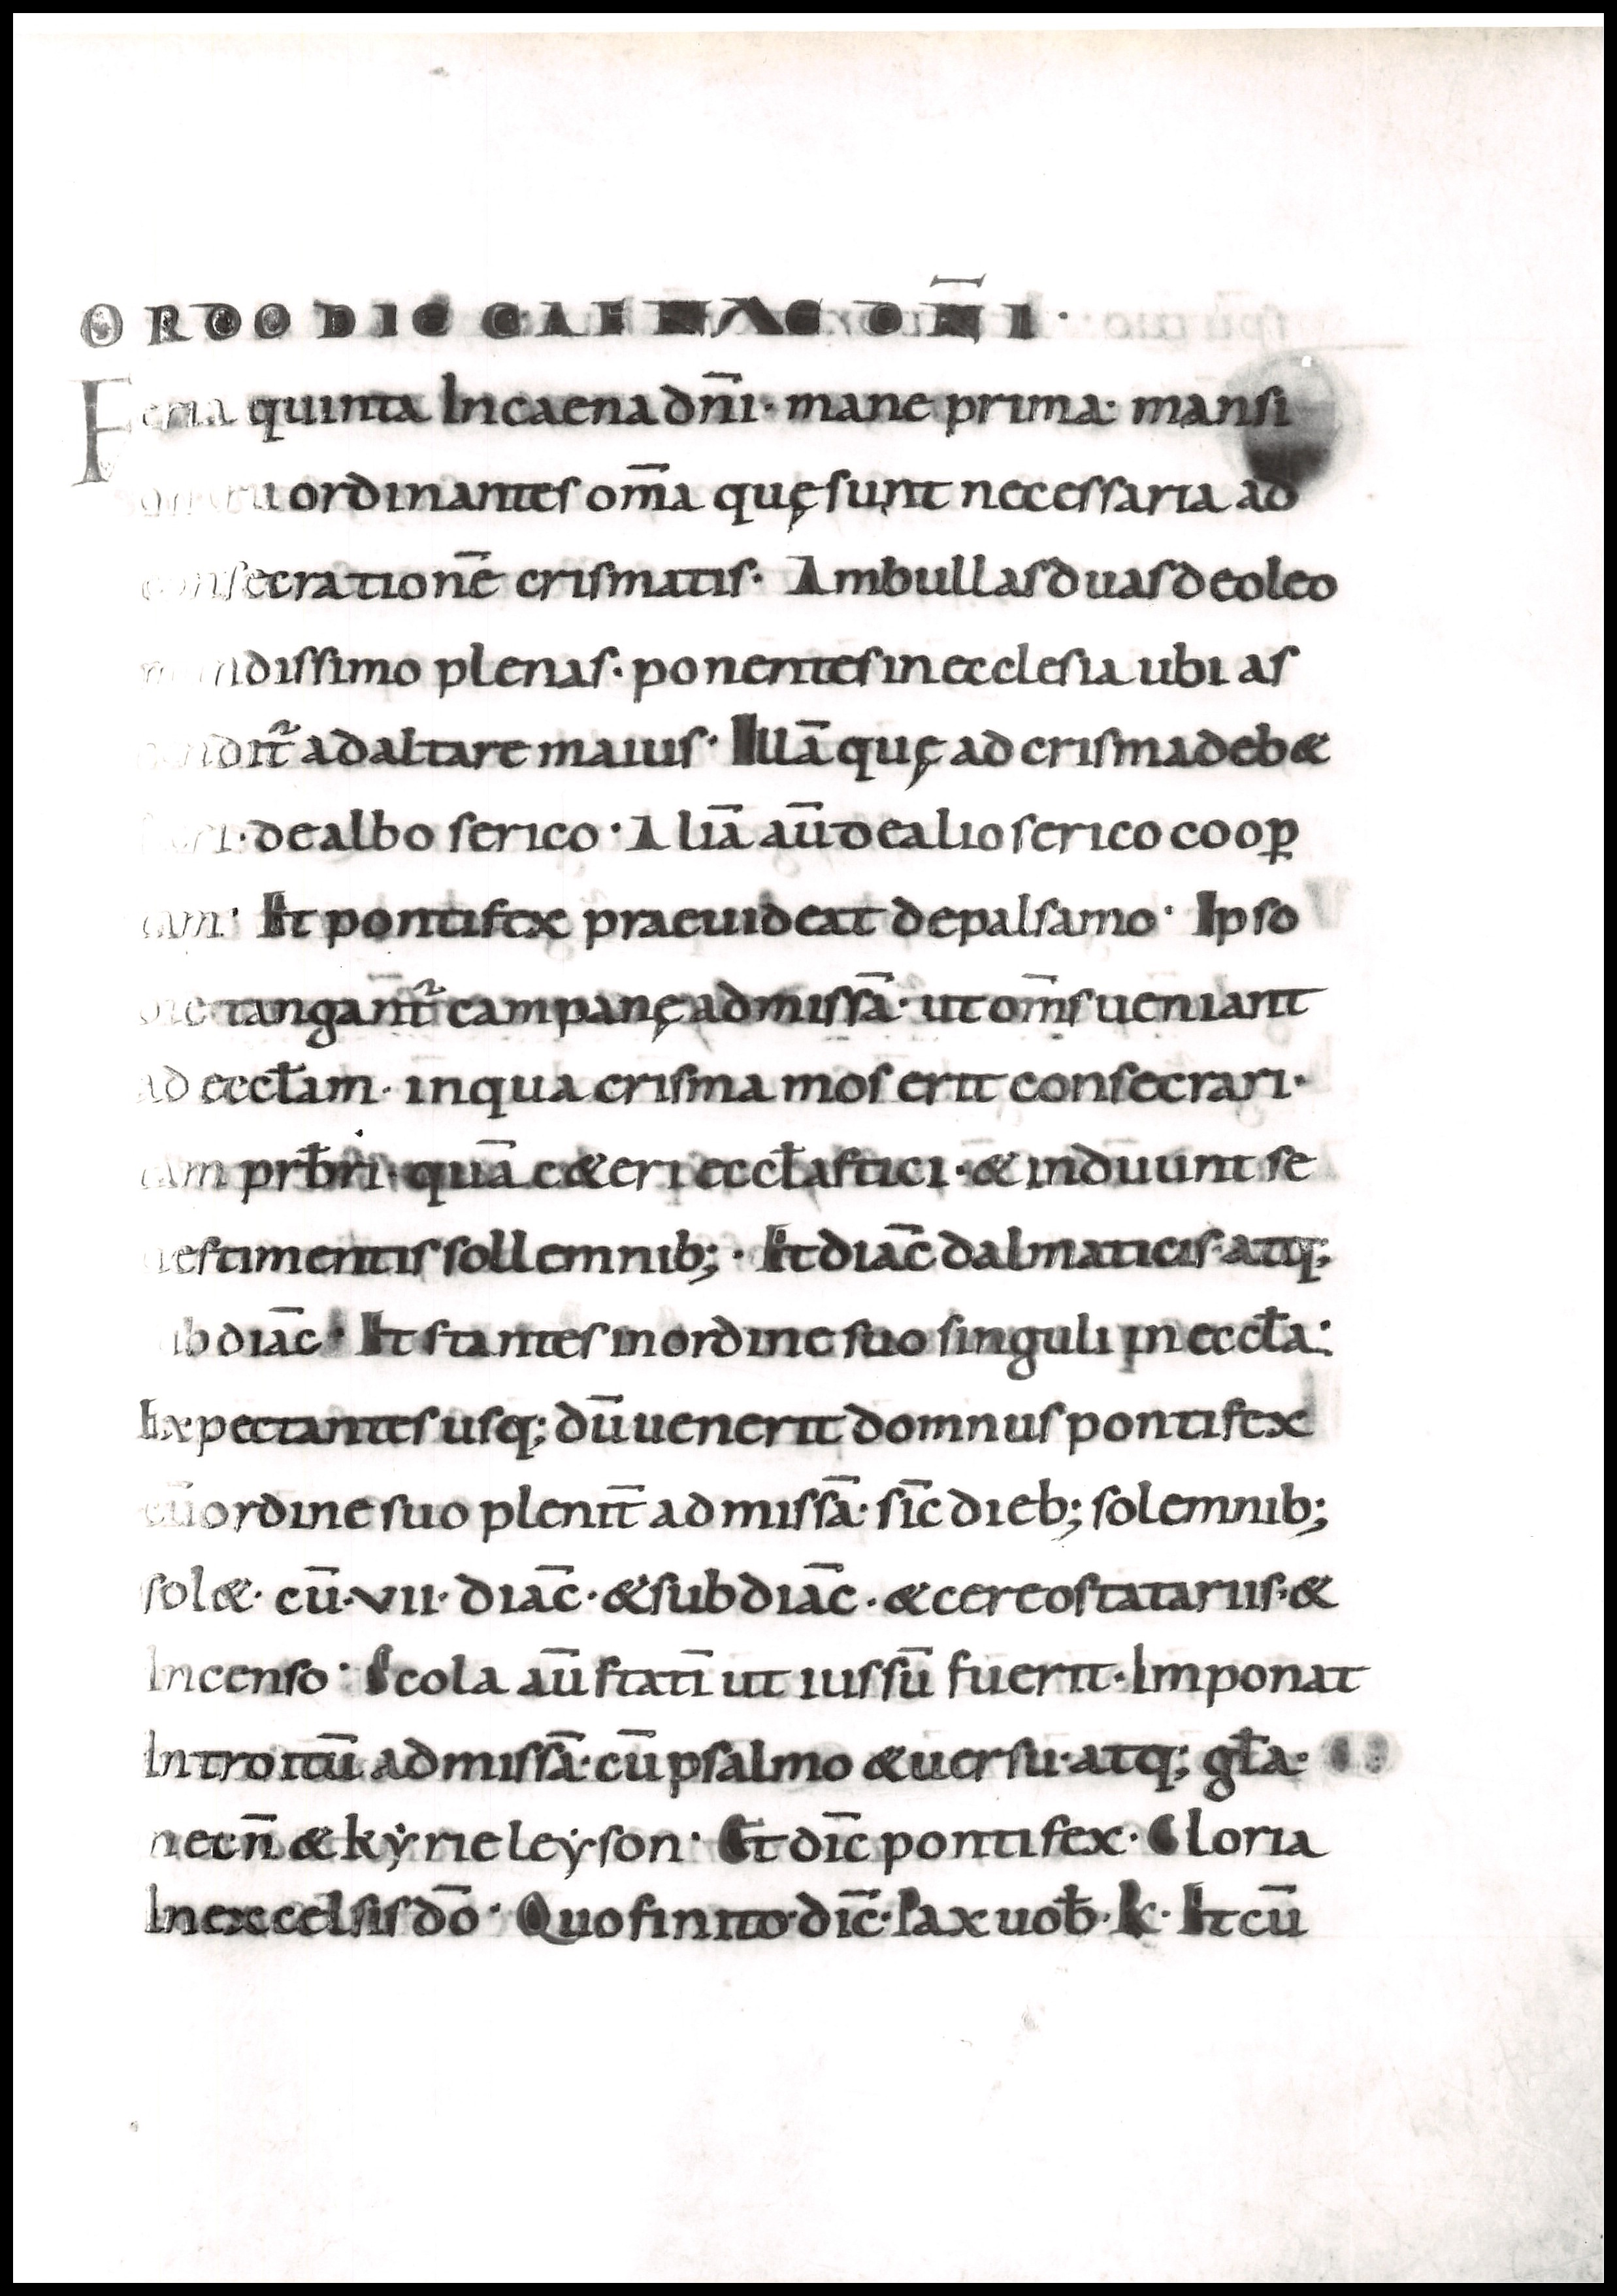 ORDO DIE CAENAE DN̄I·
Feria quinta In caena dn̄i· mane prima· mansi
ordinantes om̄a quę sunt necessaria ad
consecrationē crismatis· Ambullas duas de oleo
mundissimo plenas· ponentes in ecclesia ubi as
cendit᷑ ad altare maius· Illā quę ad crisma deb&
fieri· de albo serico· Aliā aū de alio serico coop̲
tam· Et pontifex praeuideat de palsamo· Ipso
die tangant᷑ campanę ad missā· ut om̄s ueniant
ad eccƚam· in qua crisma mos erit consecrari·
tam prƀri· quā c&eri eccƚastici· & induunt se
uestimentis sollemnib;· Et diac̄ dalmaticis· atq;
subdiac̄· Et stantes in ordine suo singuli in eccƚa·
Expectantes usq; dū uenerit domnus pontifex
cū ordine suo plenit̄ ad missā· sic̄ dieb; solemnib;
sol&· cū· vii· diac̄· & subdiac̄· & cereostatariis· &
Incenso· Scola aū statī ut iussū fuerit· Imponat
Introitū ad missā· cū psalmo & uersu· atq; gƚa·
necn̄ & kẏrieleẏson· Et dic̄ pontifex· Gloria
In excelsis dō· Quo finito· dic̄· Pax uoƀ· R· Et cū